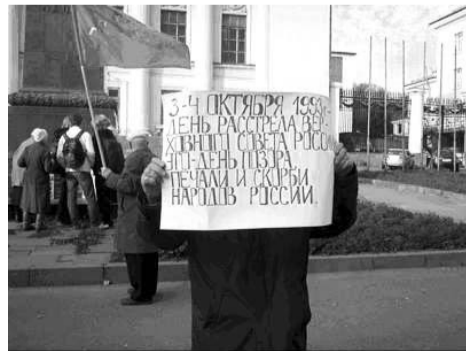 3-4 ОКТЯБРЯ 1993-
ДЕНЬ РАССТРЕЛА ВЕР-
ХОВНОГО СОВЕТА РОССИИ
ЭТО-ДЕНЬ ПОЗОРА,
ПЕЧАЛИ И СКОРБИ
НАРОДОВ РОССИИ.